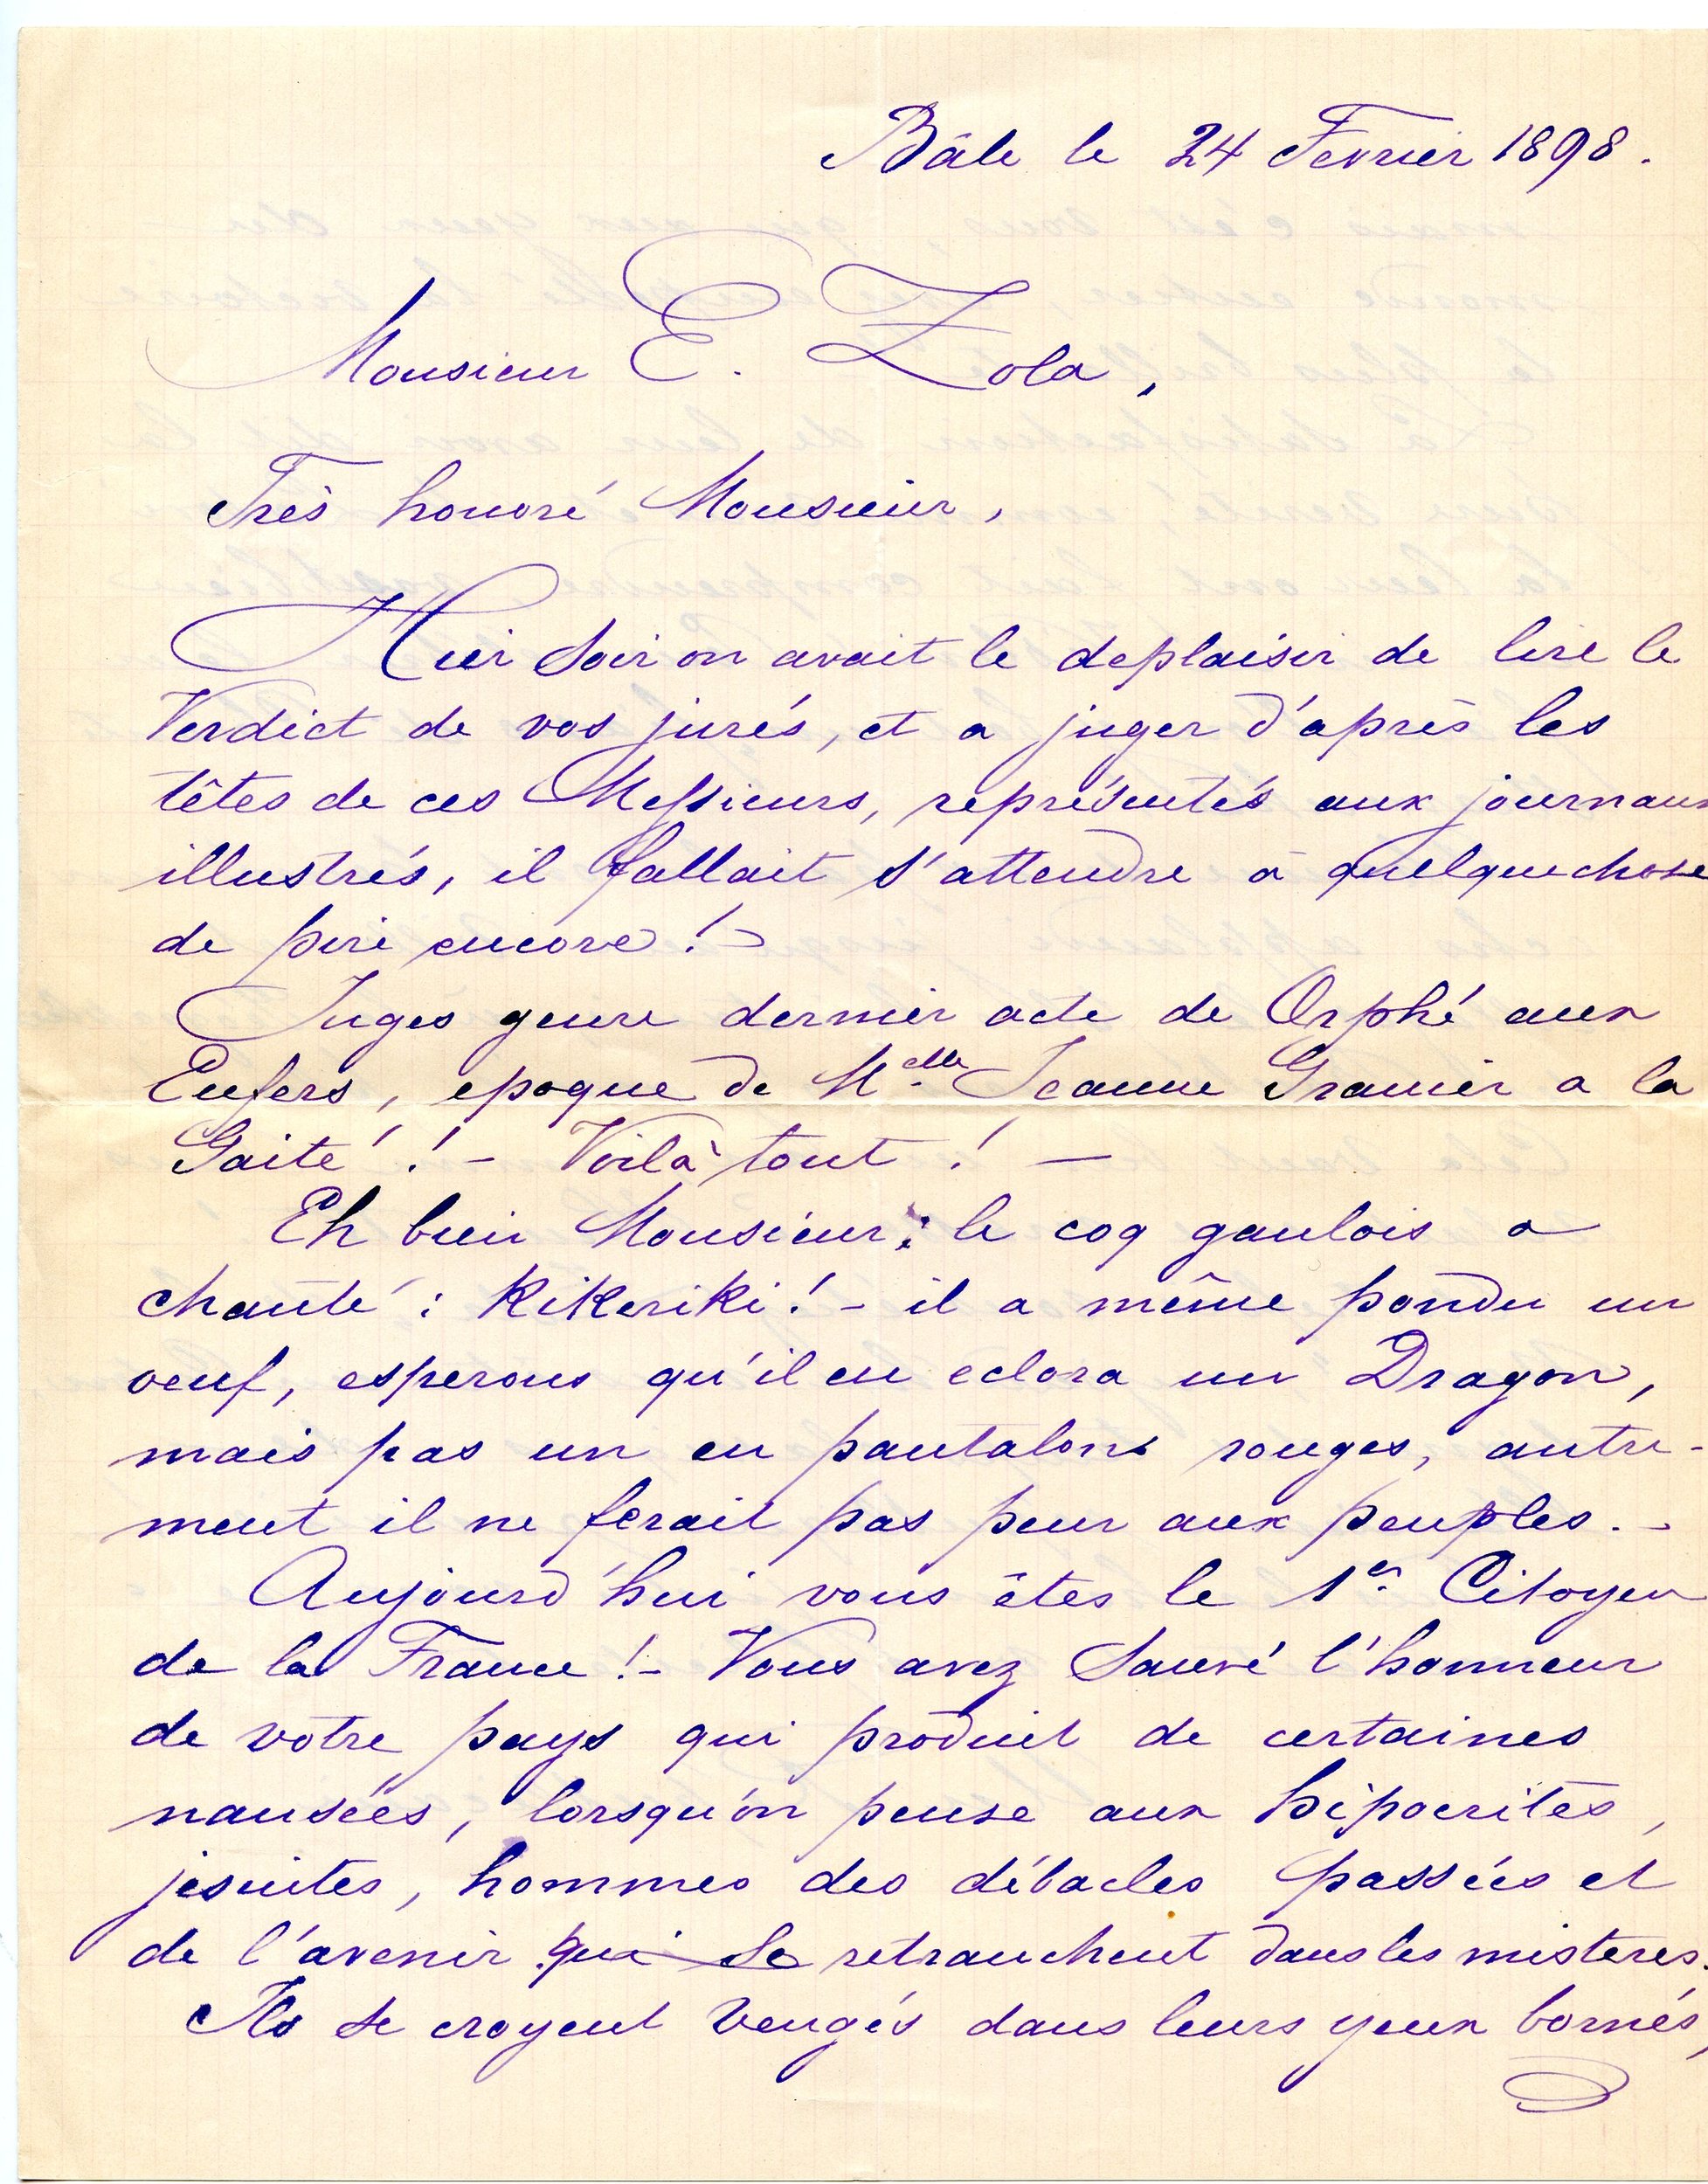 Bâle le 24 Fevrier 1898.
Monsieur E. Zola,
Très honoré Monsieur,
Hier soir on avait le deplaisir de lire le
Verdict de vos jurés, et a juger d'après les
têtes de ces Messieurs, représentés aux journaux
illustrés, il fallait s'attendre à quelquechose
de pire encore! -
Juges genre dernier acte de Orphé aux
Enfers, epoque de Melle Jeanne Granier a la
Gaité! - Voilà tout! -
Eh bien Monsieur: le coq gaulois a
chanté: Kikeriki! - il a même pondu un
oeuf, esperons qu'il en eclora un Dragon,
mais pas un en pantalons rouges, autre-
ment il ne ferait pas peur aux peuples. -
Aujourd'hui vous êtes le 1er Citoyen
de la France! - Vous avez sauvé l'honneur
de votre pays qui produit de certaines
nausées, lorsqu'on pense aux hipocrites,
jesuites, hommes des débacles passées et
de l'avenir qui se retranchent dans les misteres.
Ils se croyent vengés dans leurs yeux bornés,